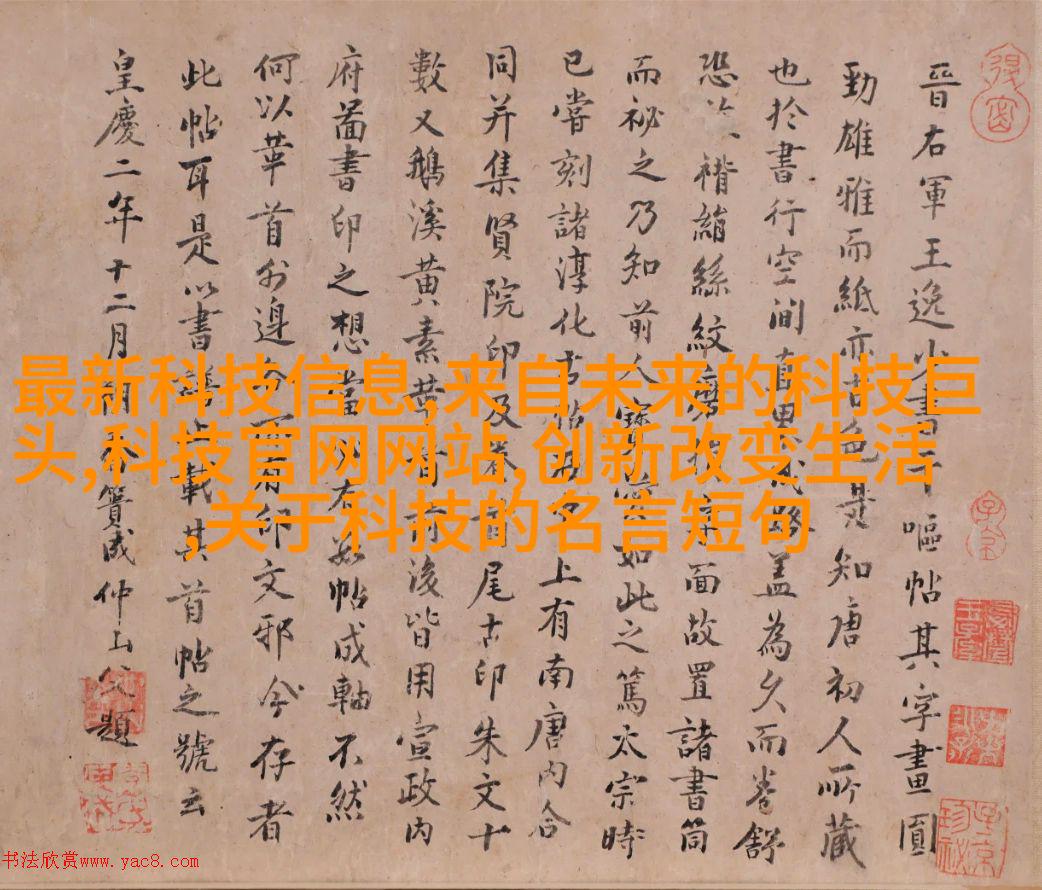 晉右軍王逸少書干嘔帖其字畫圓
勁雄雅而紙亦古色是知唐初人所藏
也於書行空間直界 盖為久而卷舒
恐 褙絹絲紋磨 面故置諸書筒
而祕之乃知前人寶 如此之篤太宗時
已嘗刻諸淳化 帖 上有南唐內合
同并集賢院印及卷首尾古印朱文十
數又鵝溪黃素 前後皆用宣政內
府啚書印之想當以右 帖成軸不然
何以華首外邊 印文邪今存者
此帖耳是以書譜止載其首帖之號云
皇慶二年十二月朔 簣成仲山父題
最新科技信息,来自未来的科技巨
头,科技官网网站,创新改变生活
,关于科技的名言短句
书法欣赏www.yac8.com